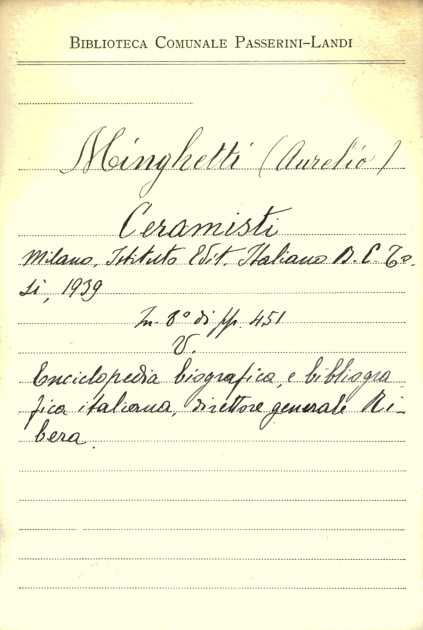 BIBLIOTECA COMUNALE PASSERINI-LANDI
Minghetti (Aurelio)
Ceramisti
Milano, Istituto Edit. Italiano B. C. To-
si, 1939
In-8º di pp. 451
V.
Enciclopedia biografica e bibliogra-
fica italiana, direttore generale Ri-
bera.